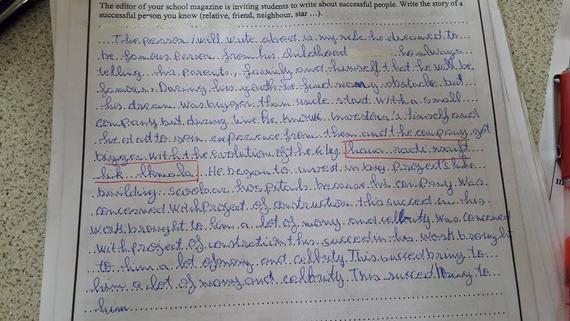 The editor of your school magazine is inviting students to write about successful people. Write the story of a
successful person you know (relative, friend, neighbour, star ...).
The person i will write about is my uncle he dreamed to
be famous person from his childhood he always
telling his parents, family and himself that he will be
famous. During his youth he find many obstacle but
his dream was bigger than uncle start with a small
company but during time he know investors himself and
his
to
from them and the company got
bigger with the evolution of the
He began to invest in big projects like
building school because his company was
concerned with project of construction this succed in his
work brought to him a lot of many and celbrity was concerned
with project of construction this succed in his work brought
to him a lot of many and celbrity. This succed bring to
him a lot of many and celbrity. This succed bring to
him